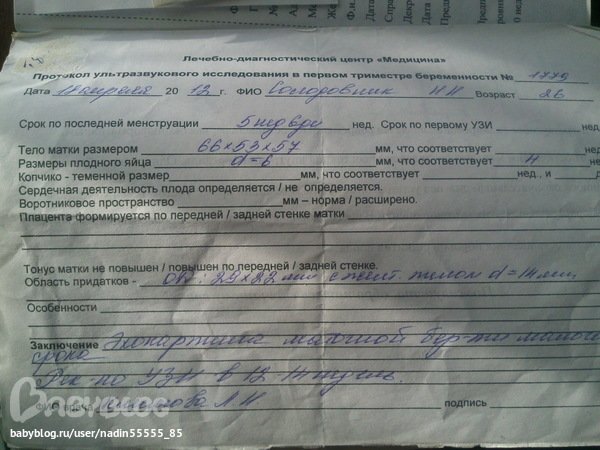 Лечебно-диагностический центр «Медицина»
Протокол ультразвукового исследования в первом триместре беременности № 1779
Дата апреля 20 12 г. ФИО Солодовник НН Возраст 26
Срок по последней менструации 5 нед нед. Срок по первому УЗИ нед,
Тело матки размером 66×53×57 мм, что соответствует нед
Размеры плодного яйца d=6 мм, что соответствует нед
Копчико - теменной размер мм, что соответствует нед., и д
Сердечная деятельность плода определяется / не определяется.
Воротниковое пространство мм – норма / расширено.
Плацента формируется по передней / задней стенке матки
Тонус матки не повышен / повышен по передней / задней стенке.
Область придатков - 29×22 мм с желт. телом d=14 мм
Особенности
Заключение Эхокартина маточной бер-ти малого
срока
Рек-но УЗИ в 12-14 недель.
ФИО врача ЛН подпись
Бэбиблог
babyblog.ru/user/nadin55555_85